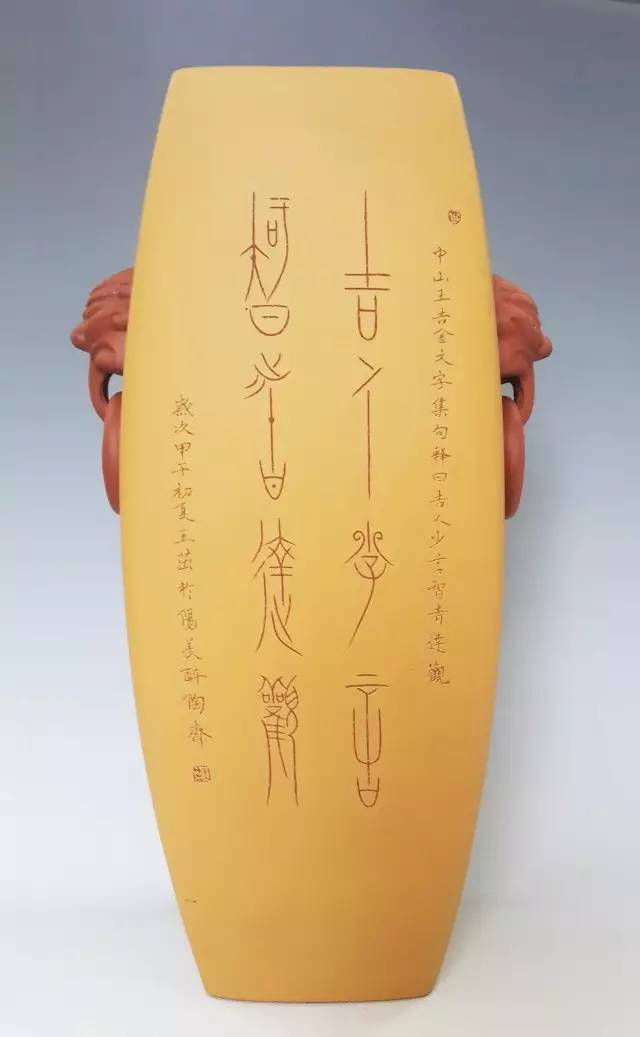 中山王吉金文字集句釋曰吉人少言智者達觀
吉人少言
智者達觀
歲次甲午初夏王茁於陽羨醉陶齋